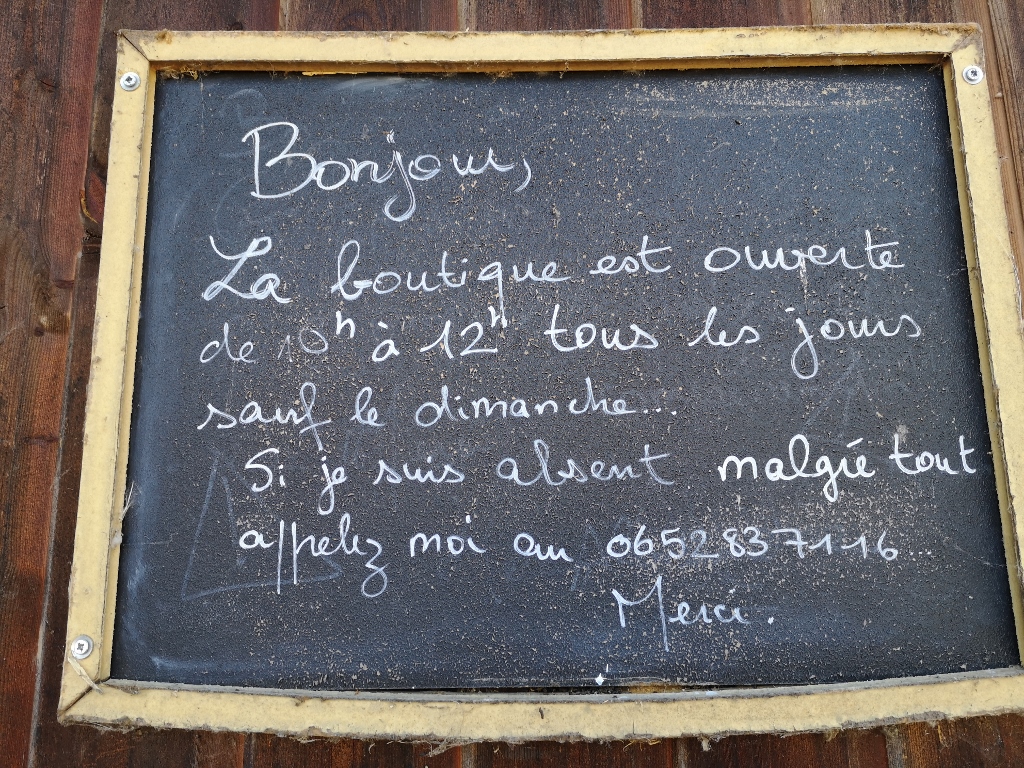 Bonjour,
La boutique est ouverte
de 10h à 12h tous les jours
sauf le dimanche...
Si je suis absent malgré tout
appelez moi au 0652837116...
Merci.